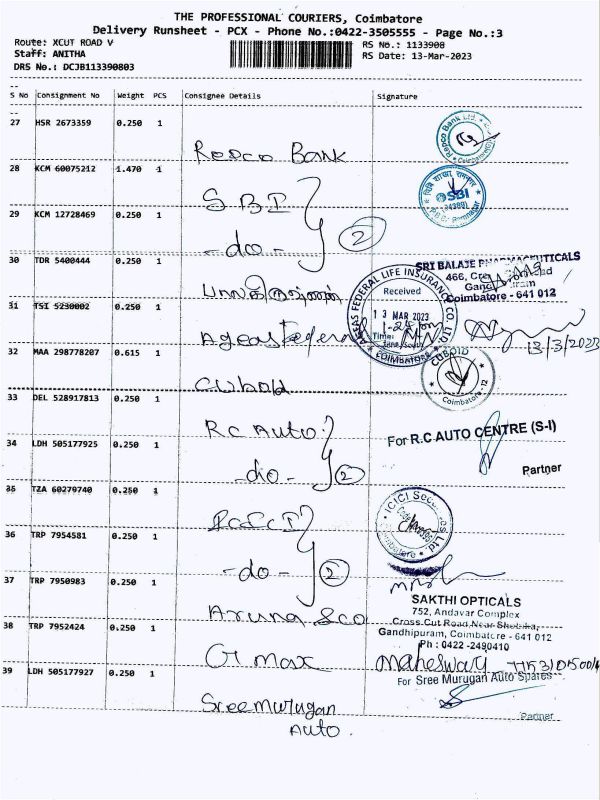 THE PROFESSIONAL COURIERS, Coimbatore
Delivery Runsheet - PCX - Phone No.:0422-3505555 - Page No.:3
Route: XCUT ROAD V RS No.: 1133908
Staff: ANITHA RS Date: 13-Mar-2023
DRS No.: DCJB113390803
S No Consignment No Weight PCS Consignee Details Signature
27 HSR 2673359 0.250 1
Repco Bank
Repco Bank Ltd.
28 KCM 60075212 1.470 1
SBI
SBI
29 KCM 12728469 0.250 1
-do- 2
30 TDR 5400444 0.250 1
SRI BALAJE PHARMACEUTICALS
466,
Coimbatore - 641 012
31 TSI 5230002 0.250 1
Ageas Federal
AGEAS FEDERAL LIFE INSURANCE CO. LTD.
Received
13 MAR 2023
Time:
COIMBATORE
13/3/2023
32 MAA 298778207 0.615 1
Cuboid
CUBOID
Coimbatore - 12
33 DEL 528917813 0.250 1
RC Auto
For R.C AUTO CENTRE (S-I)
Partner
34 LDH 505177925 0.250 1
-do- 2
35 TZA 60279740 0.250 1
ICICI
ICICI Ltd
Coimbatore
36 TRP 7954581 0.250 1
-do- 2
37 TRP 7950983 0.250 1
Aruna Sco
SAKTHI OPTICALS
752, Andavar Complex
Cross Cut Road, Near Shobika,
Gandhipuram, Coimbatore - 641 012
Ph : 0422 -2490410
38 TRP 7952424 0.250 1
G max
Maheswari
39 LDH 505177927 0.250 1
For Sree Murugan Auto Spares
Sree Murugan
Partner
Auto.